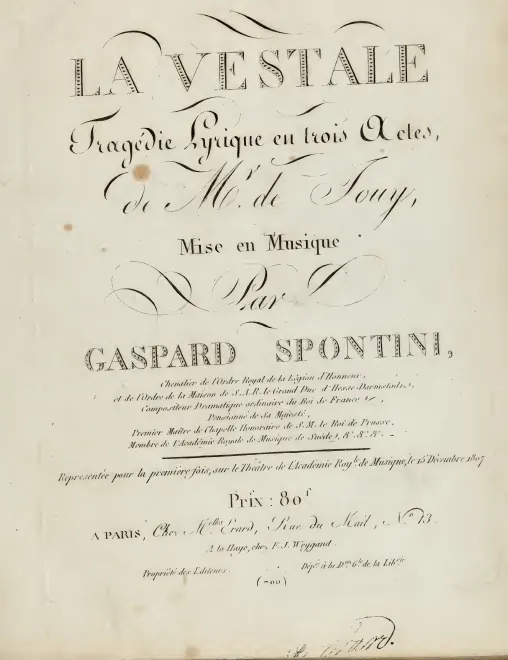 LA VESTALE
Tragédie Lyrique en trois Actes,
de Mr. de Jouy,
Mise en Musique
Par
GASPARD SPONTINI,
Chevalier de l'Ordre Royal de la Légion d'Honneur,
et de l'Ordre de la Maison de S.A.R. le Grand Duc d'Hesse-Darmstadt,
Compositeur Dramatique ordinaire du Roi de France
Pensionné de Sa Majesté,
Premier Maître de Chapelle Honoraire de S.M. le Roi de Prusse,
Membre de l'Académie Royale de Musique de Suède, &c. &c. &c.
Représentée pour la première fois, sur le Théâtre de l'Académie Royle. de Musique, le 15 Décembre 1807
Prix : 80f
A PARIS, Chez Melles Erard, Rue du Mail, No. 13.
A la Haye, chez F. J. Weygand.
Propriété des Editeurs. Déposé à la Don Gle de la Librie